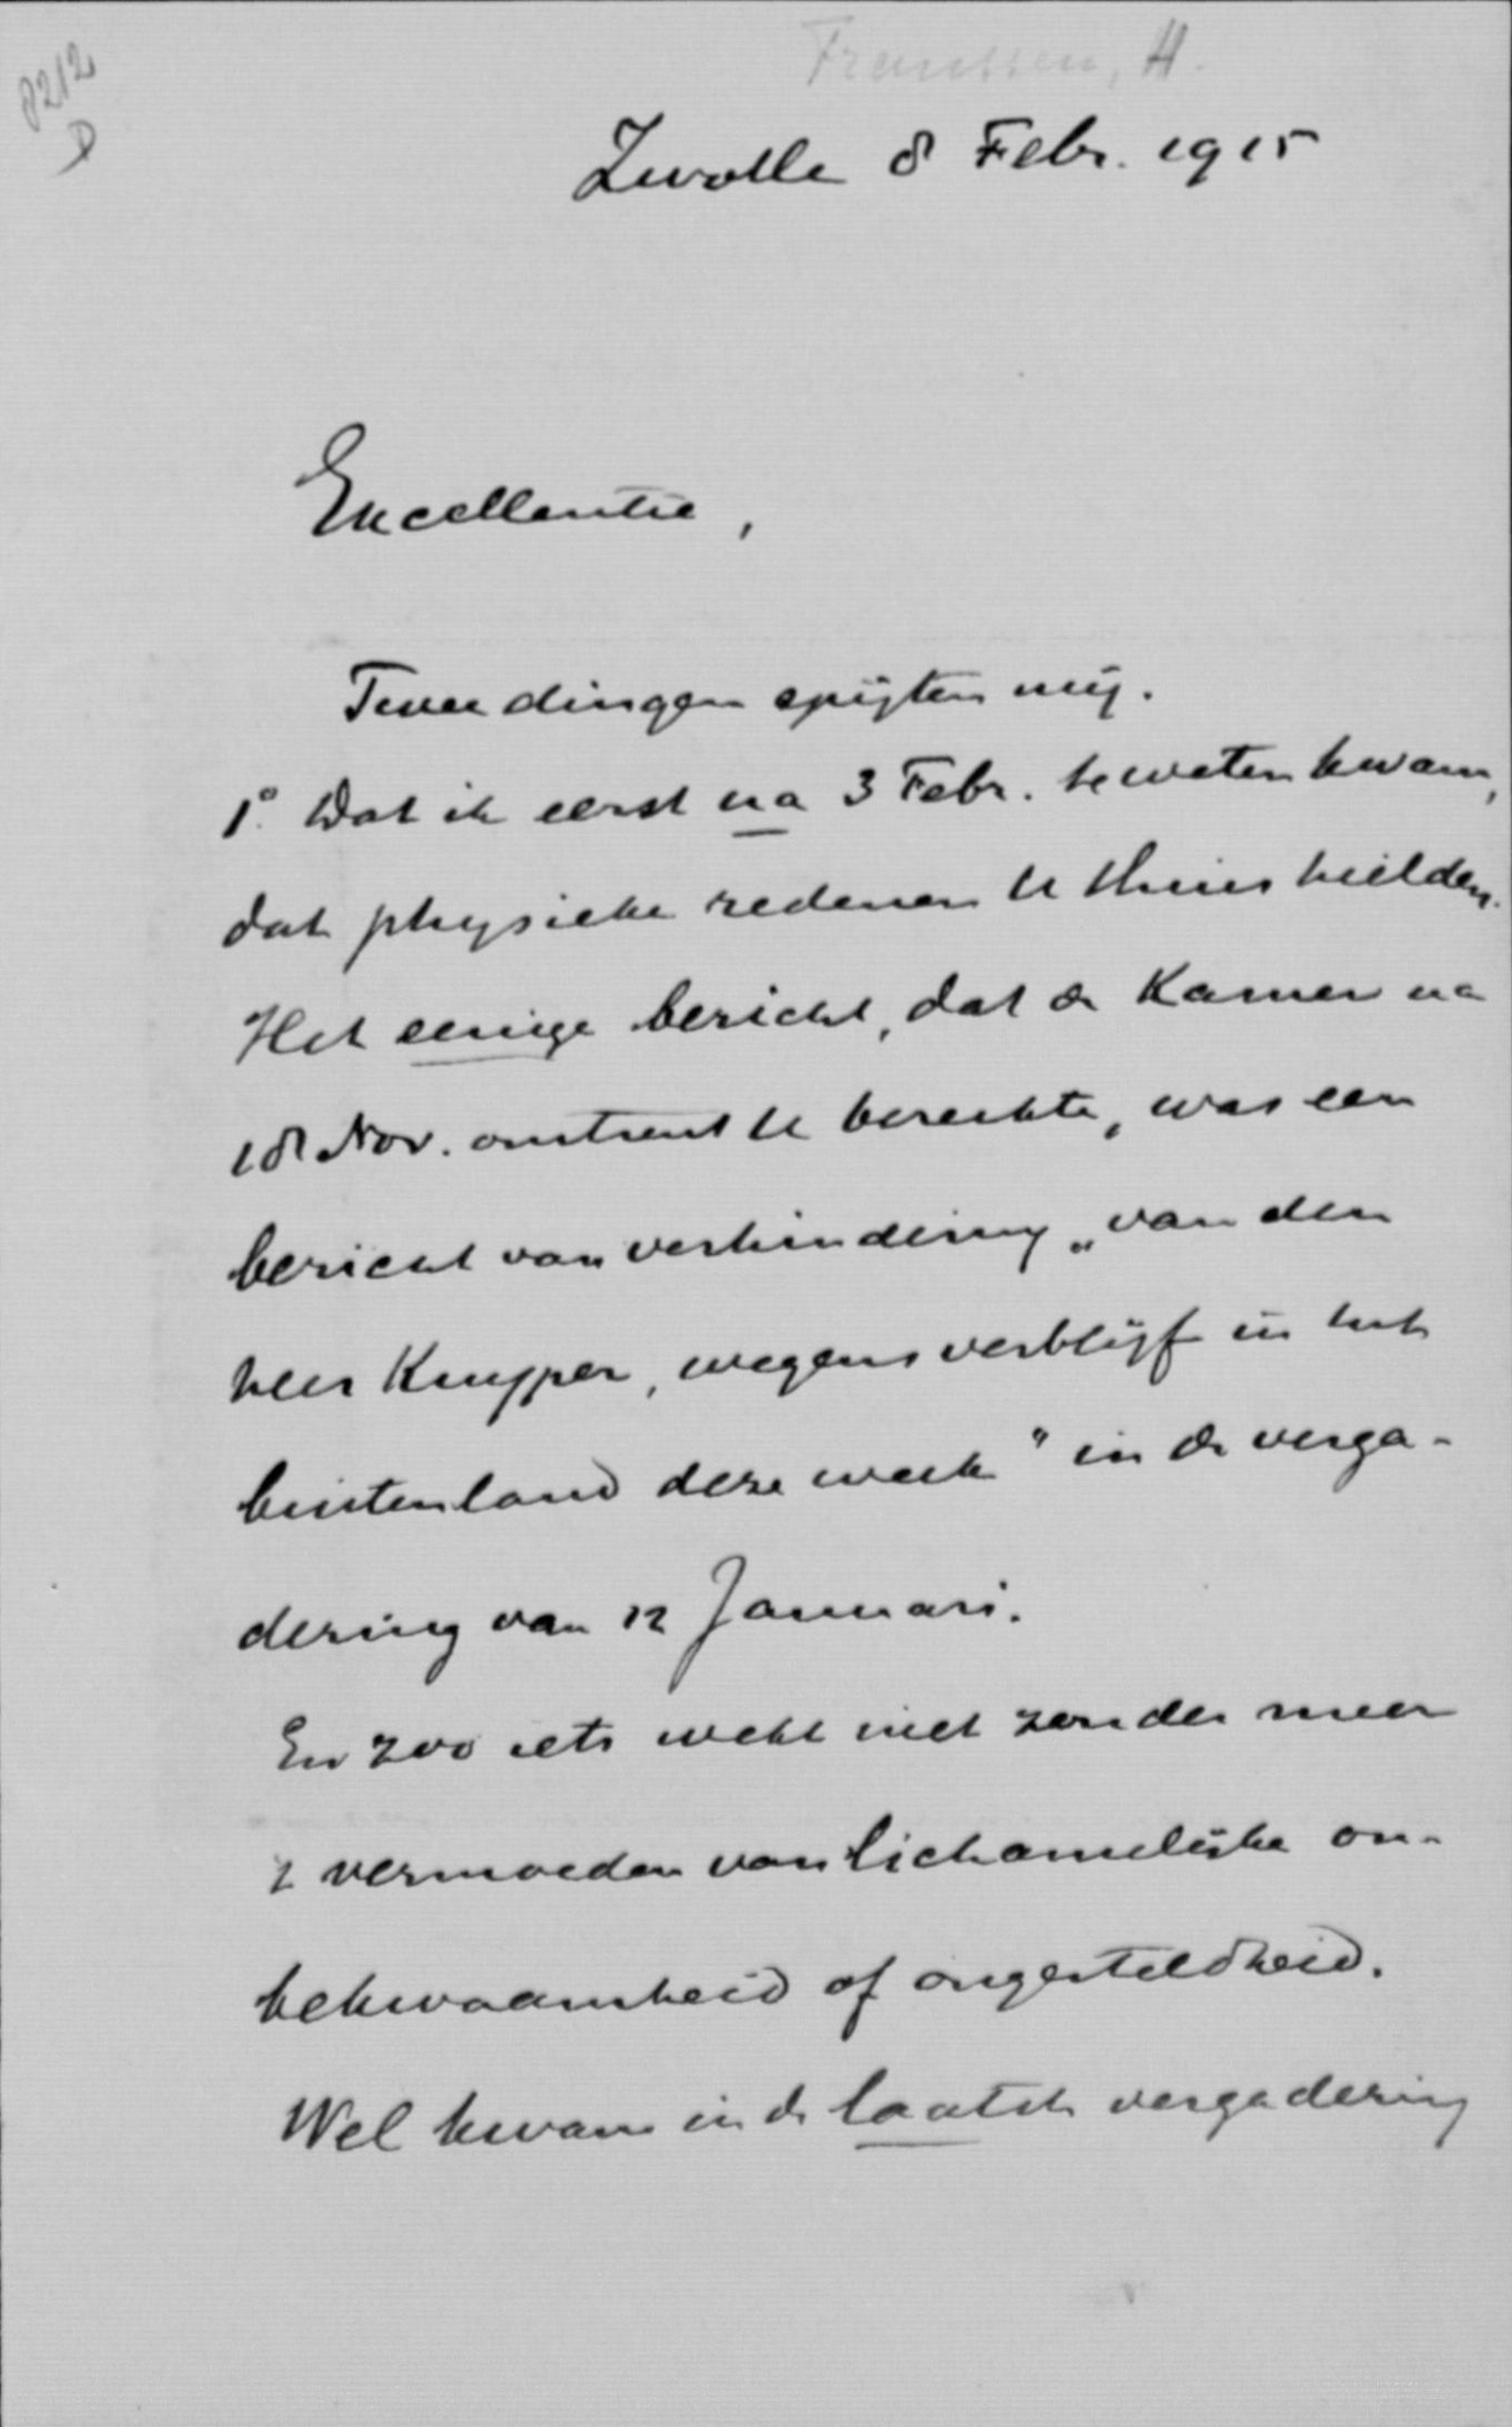 8212
D
Franssen, H.
Zwolle 8 Febr. 1915
Excellentie,
Twee dingen spijten mij.
1° Dat ik eerst na 3 Febr. te weten kwam,
dat physieke redenen U thuis hielden.
Het eenige bericht, dat de Kamer na
18 Nov. omtrent U bereikte, was een
bericht van verhindering „van den
heer Kuyper, wegens verblijf in het
buitenland deze week" in de verga-
dering van 12 Januari.
En zoo iets wekt niet zonder meer
't vermoeden van lichamelijke on-
bekwaamheid of ongesteldheid.
Wel kwam in de laatste vergadering